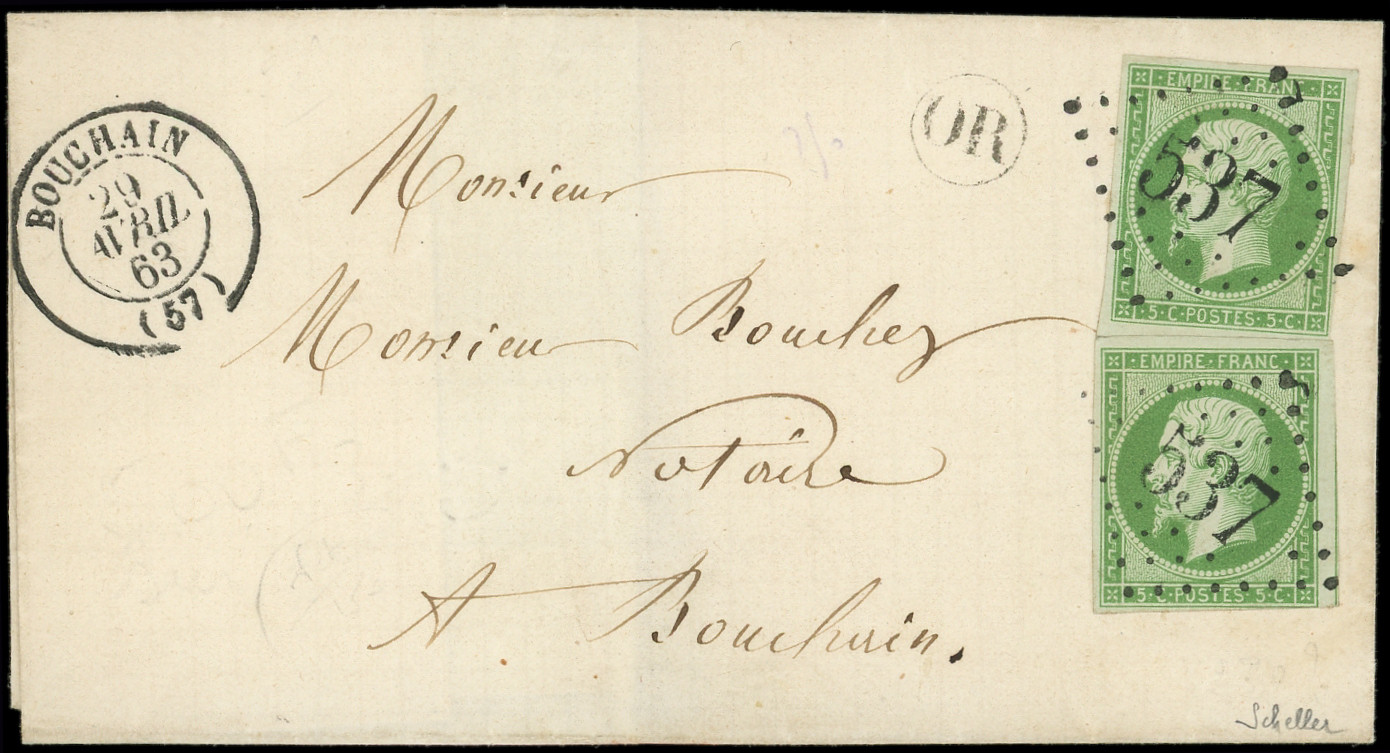 BOUCHAIN
29
AVRIL
63
(57)
OR
Monsieur
Monsieur Bouchez
Notaire
A Bouchain.
EMPIRE·FRANC·
537
·5·C·POSTES·5·C·
EMPIRE·FRANC·
537
·5·C·POSTES·5·C·
Scheller